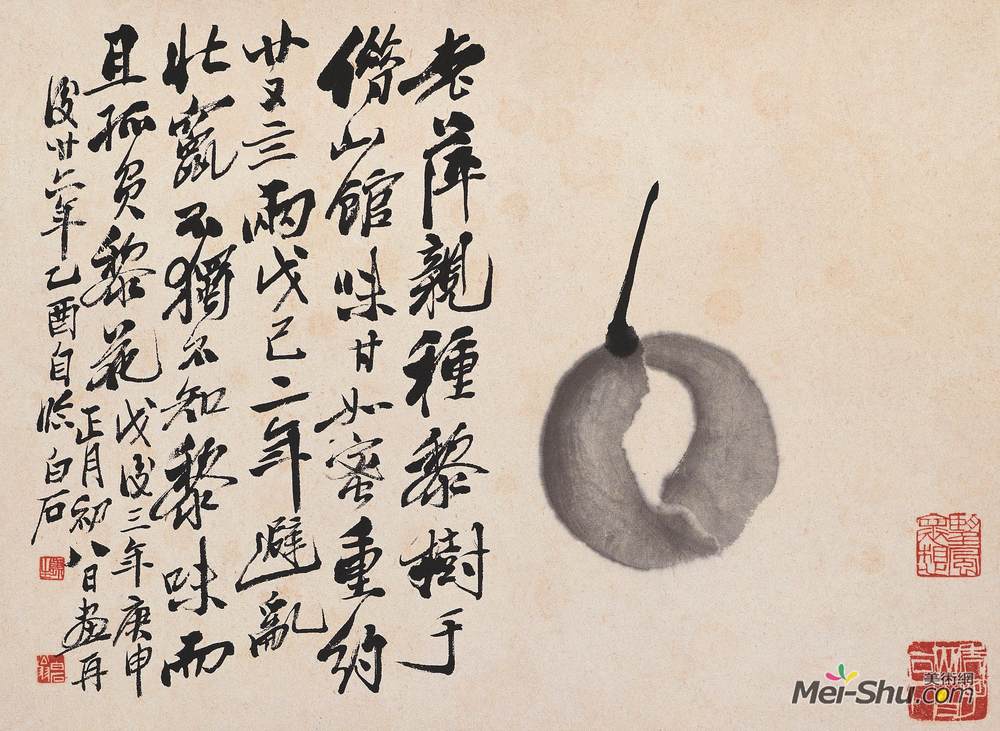 老萍親種黎樹于
借山館味甘如蜜重約
廿又三兩戊己二年避亂
北竄不獨不知黎味而
且孤負黎花
戊後三年庚申
正月初八日畫再
後廿六年乙酉自臨白石
美術網
Mei-Shu.com